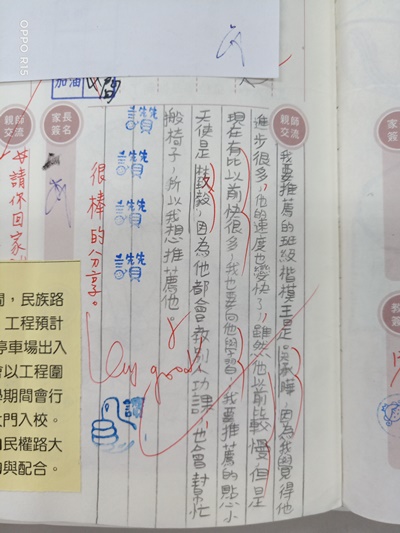 加油
親師交流
我要推薦的班級楷模王是 因為我覺得他
進步很多，他的速度也變快了，雖然他以前比較慢但是
現在有比以前快很多，我也要向他學習，我要推薦的點心小
天使是 ，因為他都會教別人功課，也會幫忙
搬椅子，所以我想推薦他。
讚
讚
讚
讚
讚
很棒的分享。
Very good
家長簽名
親師交流
請 回家
，民族路
工程預計
停車場出入
以工程圍
學期間會行
大門入校。
民權路大
與配合。
OPPO R15